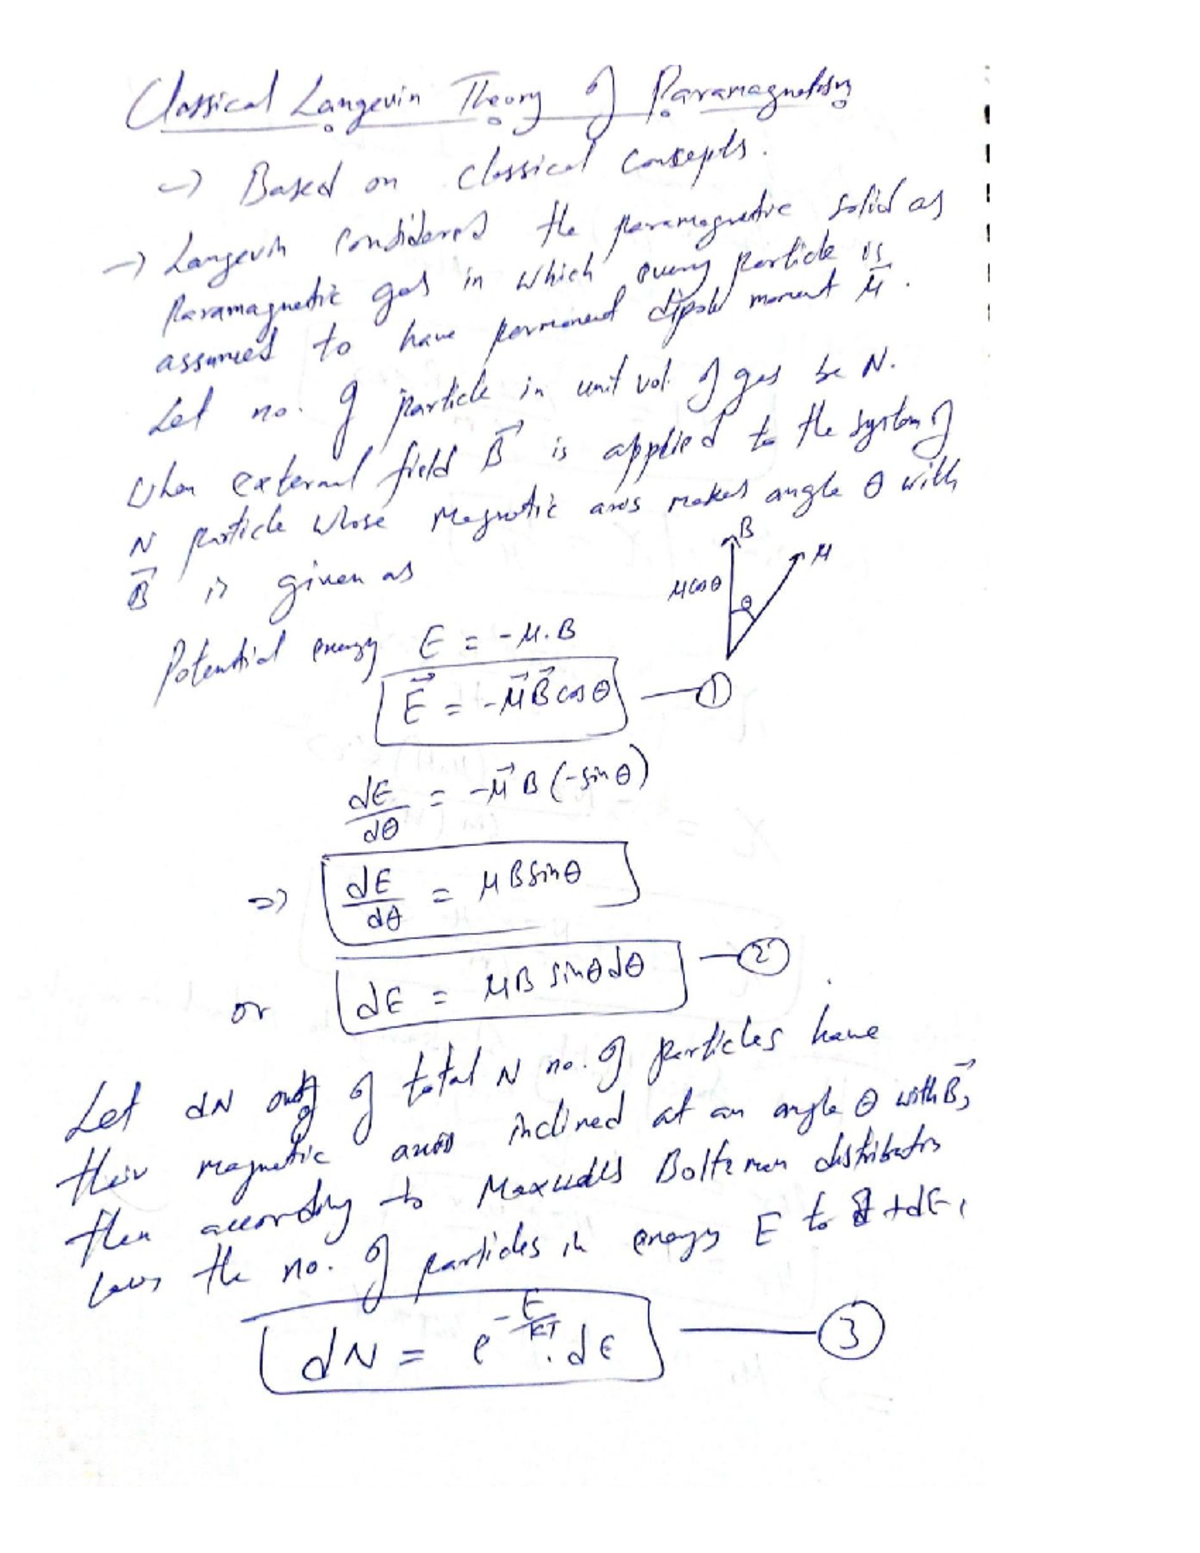 Classical Langevin Theory of Paramagnetism
→ Based on classical concepts.
→ Langevin considered the paramagnetic solid as
Paramagnetic gas in which every particle is
assumed to have permanent dipole moment μ⃗.
Let no. of particle in unit vol. of gas be N.
When external field B⃗ is applied to the system of
N particle whose magnetic axis makes angle θ with
B⃗ is given as
B
μ
μcosθ
θ
Potential energy E = -μ.B
E⃗ = -μ⃗B⃗cosθ — ①
dE/dθ = -μ⃗B(-sinθ)
⇒ dE/dθ = μBsinθ
or dE = μB sinθdθ — ②
Let dN out of total N no. of particles have
their magnetic axis inclined at an angle θ with B⃗,
then according to Maxwells Boltzman distribution
laws the no. of particles in energy E to E+dE,
dN = e^(-E/KT).dE — ③